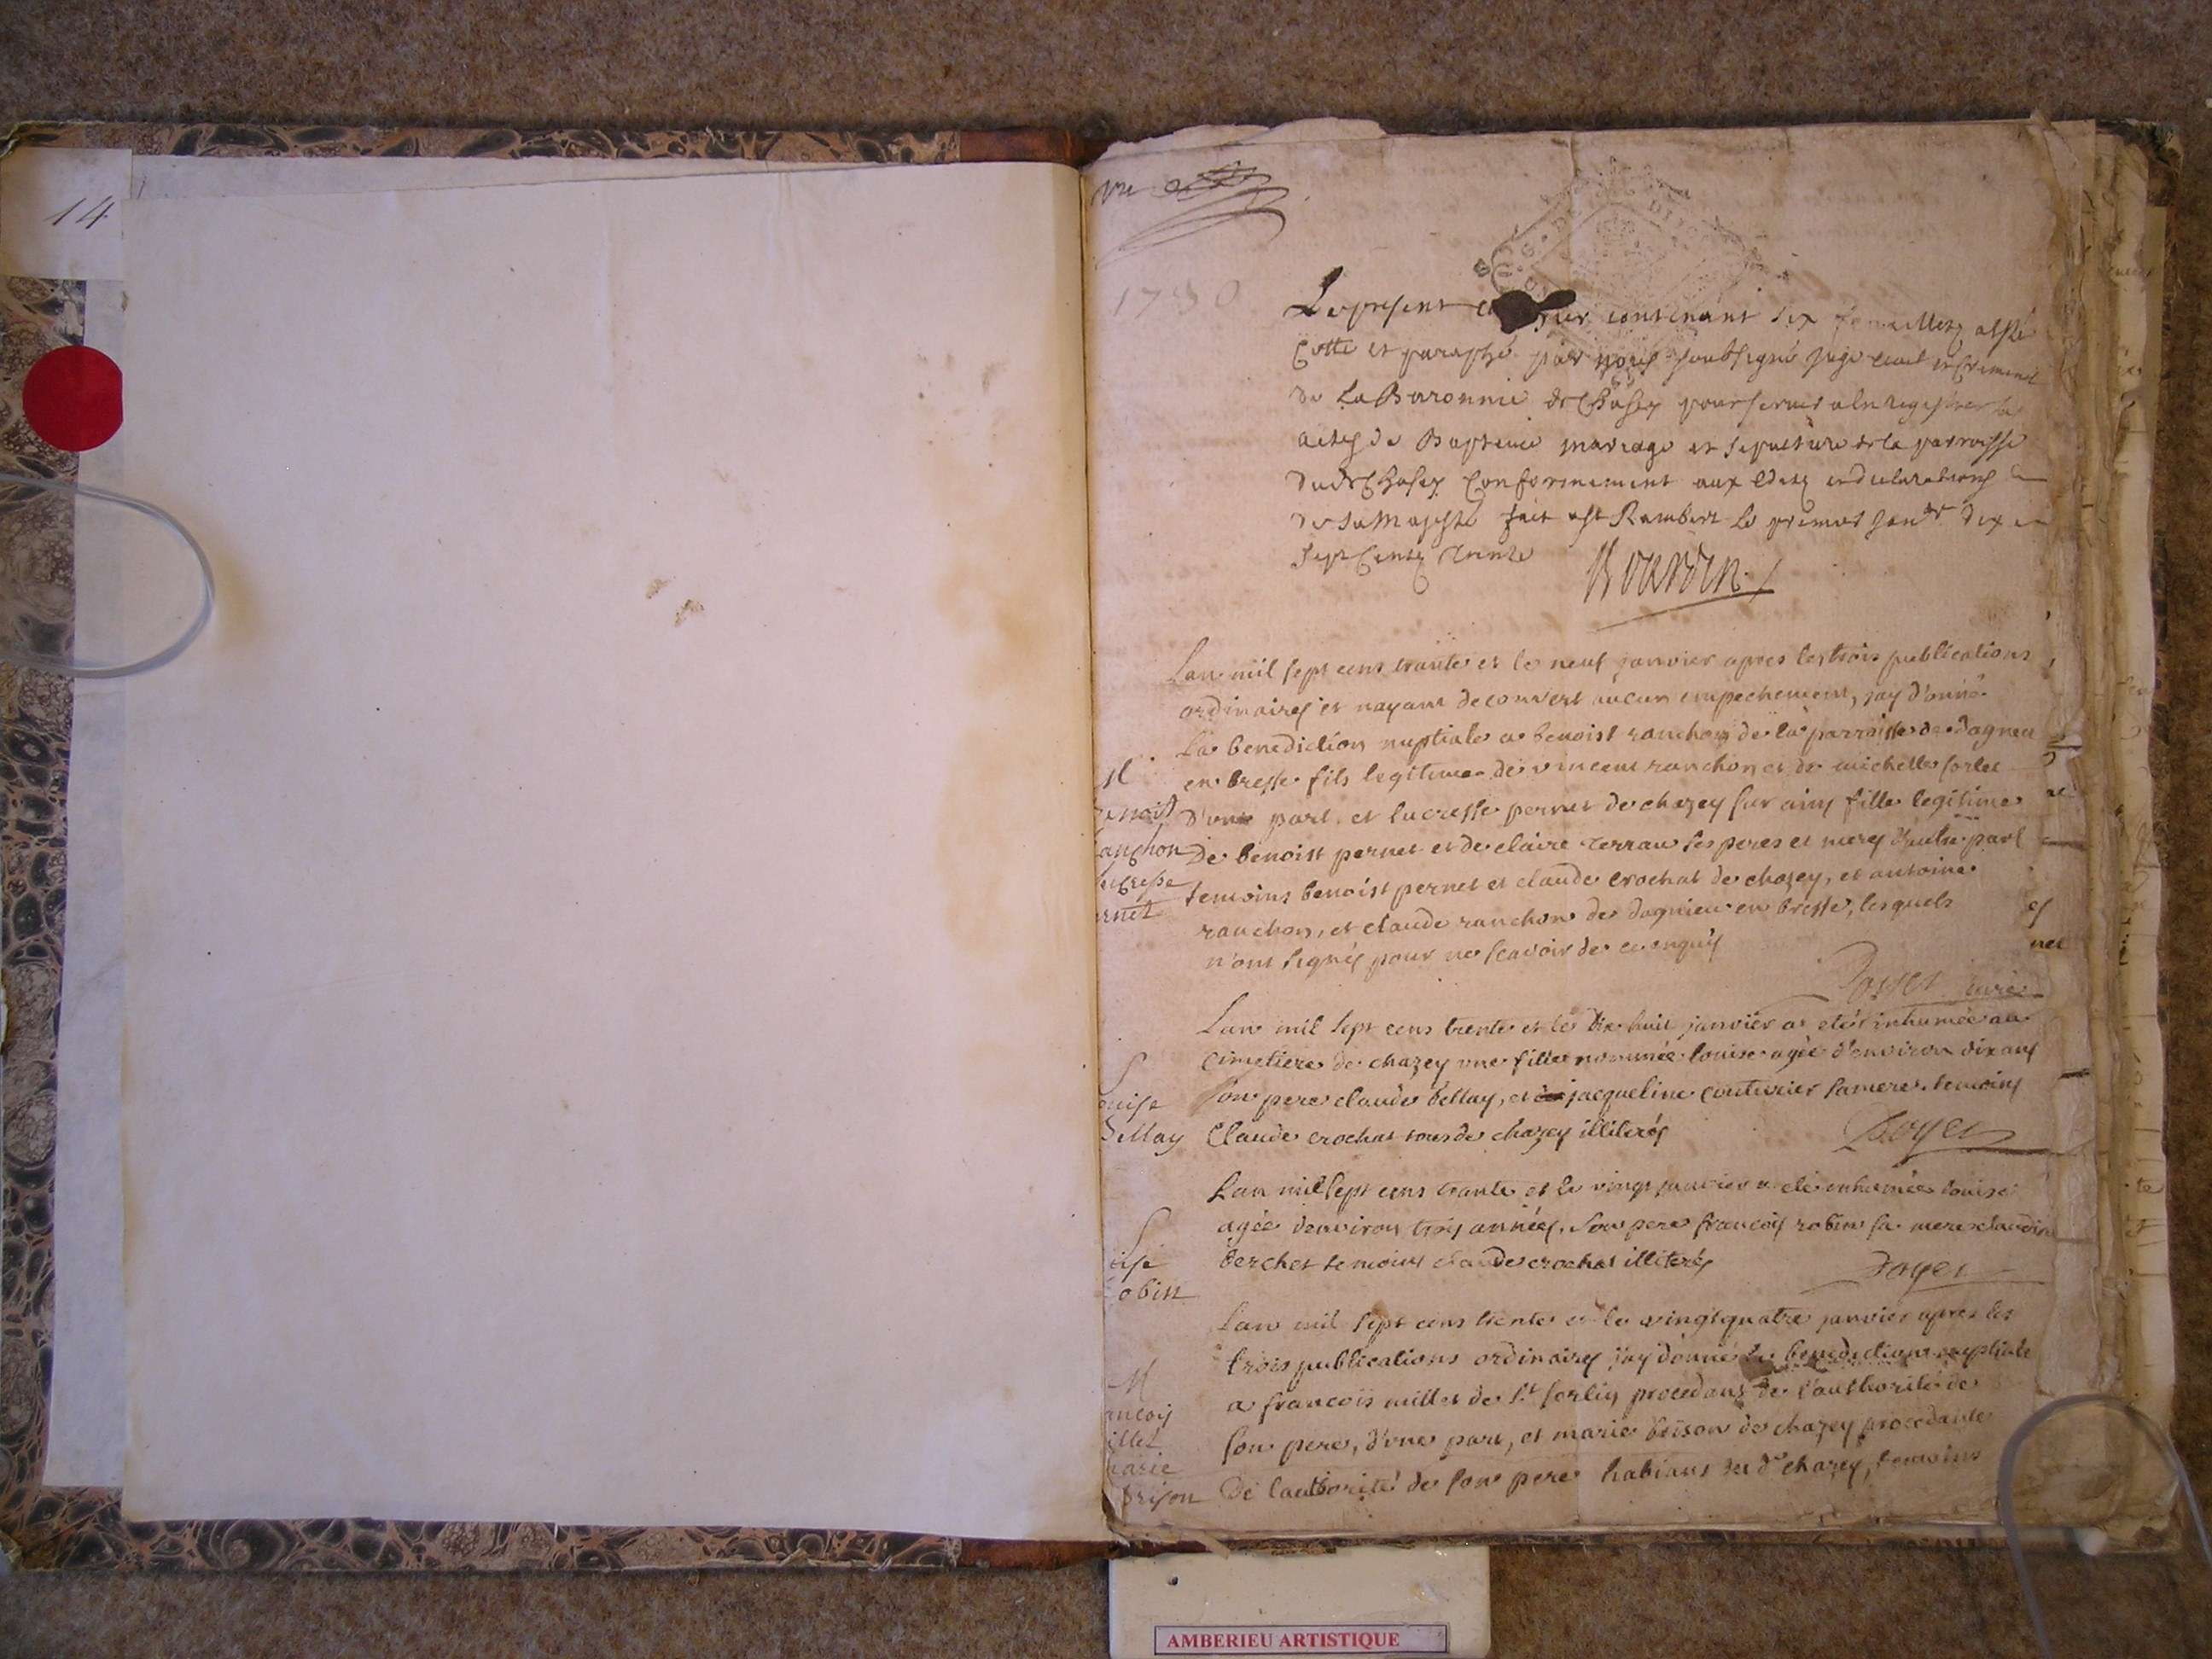 14
vu
1730
Le present contenant six feuillets a esté
Cotté et paraphé par nous soubsigné juge civil et criminel
de La Baronnie de Chasey pour servir a enregistrer les
actes de Baptême mariage et sepulture de la parroisse
dud Chasey Conformement aux Edits et declarations
de sa Majesté fait a St Rambert le premier janvr dix
sept Cents trente
Lan mil sept cens trante et le neuf janvier apres les trois publications
ordinaires et nayant decouvert aucun empechement, jay donné
La benediction nuptiale a benoist ranchon de la parroisse de dagneu
en bresse fils legitime de vincent ranchon et de michelle
d'une part, et lucresse pernet de chazey sur ains fille legitime
De benoist pernet et de claire terrau ses peres et meres d'autre part
temoins benoist pernet et claude crochat de chazey, et antoine
ranchon, et claude ranchon de dagnieu en bresse, lesquels
n'ont signés pour ne scavoir de ce enquis
M
enoist
anchon
ucresse
ernet
curé
Lan mil sept cens trente et le dix huit janvier a eté inhumée au
Cimetiere de chazey une fille nommée louise agée d'environ dix ans
son pere claude bellay, et jacqueline couturier sa mere. temoins
Claude crochat tous de chazey illiterés
S
ouise
bellay
Boyer
Lan mil sept cens trante et le vingt janvier a eté inhumée louise
agée denviron trois années. son pere francois robin sa mere claudin
berchet temoins claude crochat illiterés
S
uise
obin
Boyer
Lan mil sept cens trente et le vingtquatre janvier apres les
trois publications ordinaires jay donné la benediction nuptiale
a francois millet de St sorlin procedant de l'authorité de
son pere, d'une part, et marie brison de chazey procedante
De lauthorité de son pere habitans du dt chazey, temoins
M
ancois
illet
marie
brison
es
net
AMBERIEU ARTISTIQUE